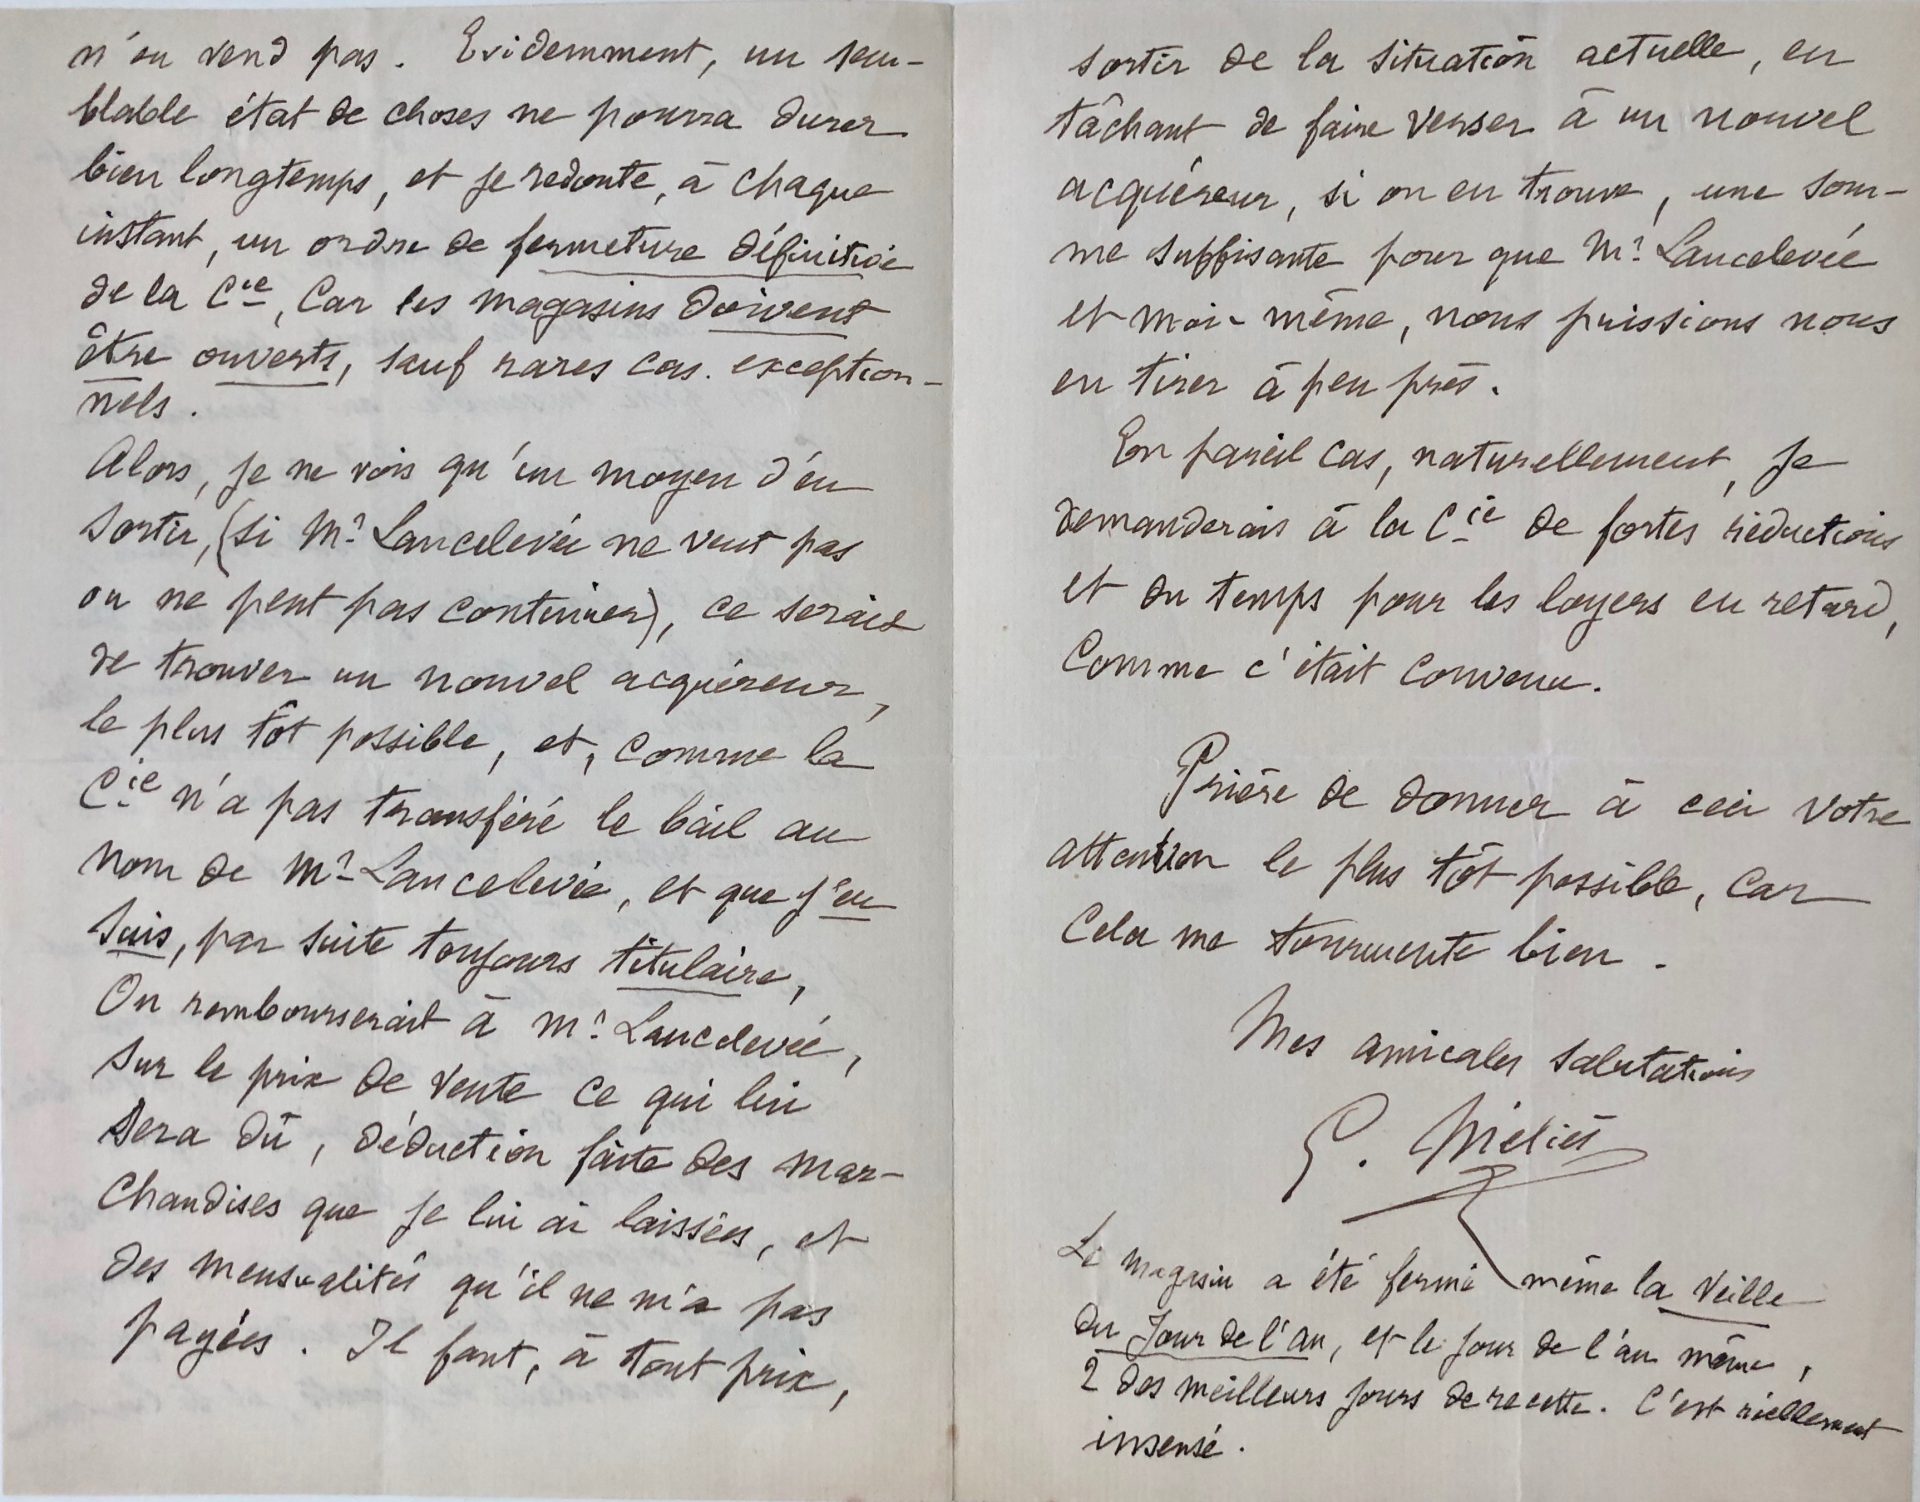 n'en vend pas. Evidemment, un sem-
blable état de choses ne pourra durer
bien longtemps, et je redoute, à chaque
instant, un ordre de fermeture définitive
de la Cie, Car les magasins doivent
être ouverts, sauf rares cas. exception-
nels.
Alors, je ne vois qu'un moyen d'en
sortir, (si Mr Lancelevée ne veut pas
ou ne peut pas continuer), ce serait
de trouver un nouvel acquéreur,
le plus tôt possible, et, comme la
Cie n'a pas transféré le bail au
nom de Mr Lancelevée, et que j'en
suis, par suite toujours titulaire,
On rembourserait à Mr Lancelevée,
sur le prix de vente ce qui lui
sera dû, déduction faite des mar-
chandises que je lui ai laissées, et
des mensualités qu'il ne m'a pas
payées. Il faut, à tout prix,
sortir de la situation actuelle, en
tâchant de faire verser à un nouvel
acquéreur, si on en trouve, une som-
me suffisante pour que Mr Lancelevée
et moi-même, nous puissions nous
en tirer à peu près.
En pareil cas, naturellement, je
demanderais à la Cie de fortes réductions
et du temps pour les loyers en retard,
Comme c'était convenu.
Prière de donner à ceci votre
attention le plus tôt possible, car
Cela me tourmente bien.
Mes amicales salutations
G. Méliès
Le magasin a été fermé même la veille
du Jour de l'an, et le jour de l'an même,
2 des meilleurs jours de recette. C'est réellement
insensé.